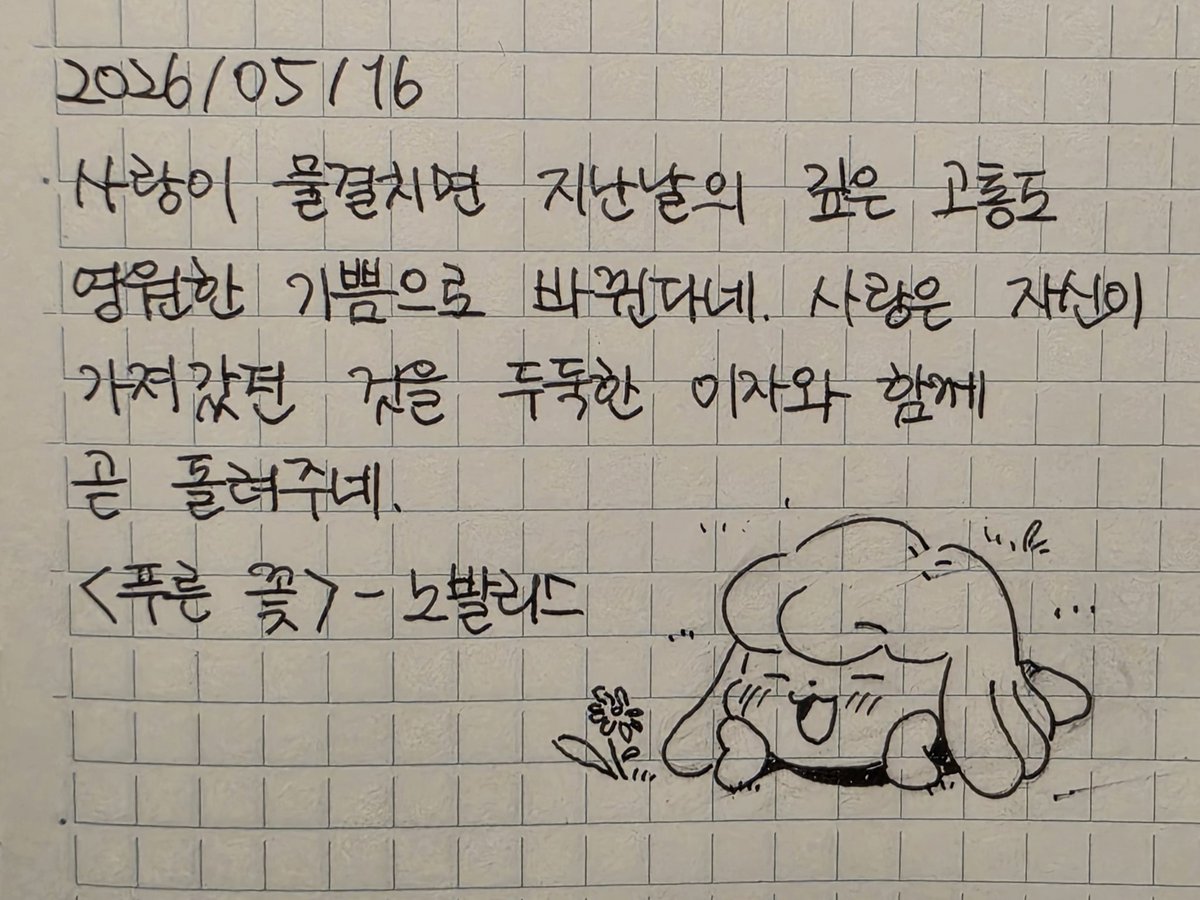 2026/05/16
사랑이 물결치면 지난날의 깊은 고통도
영원한 기쁨으로 바뀐다네. 사랑은 자신이
가져갔던 것을 두둑한 이자와 함께
곧 돌려주네.
<푸른 꽃> - 노발리스